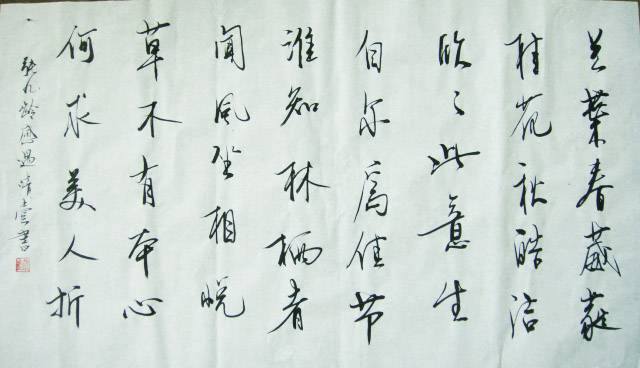 兰叶春葳蕤
桂花秋皎洁
欣々此意生
自尔为佳节
谁知林栖者
闻风坐相悦
草木有本心
何求美人折
张九龄感遇 清云书